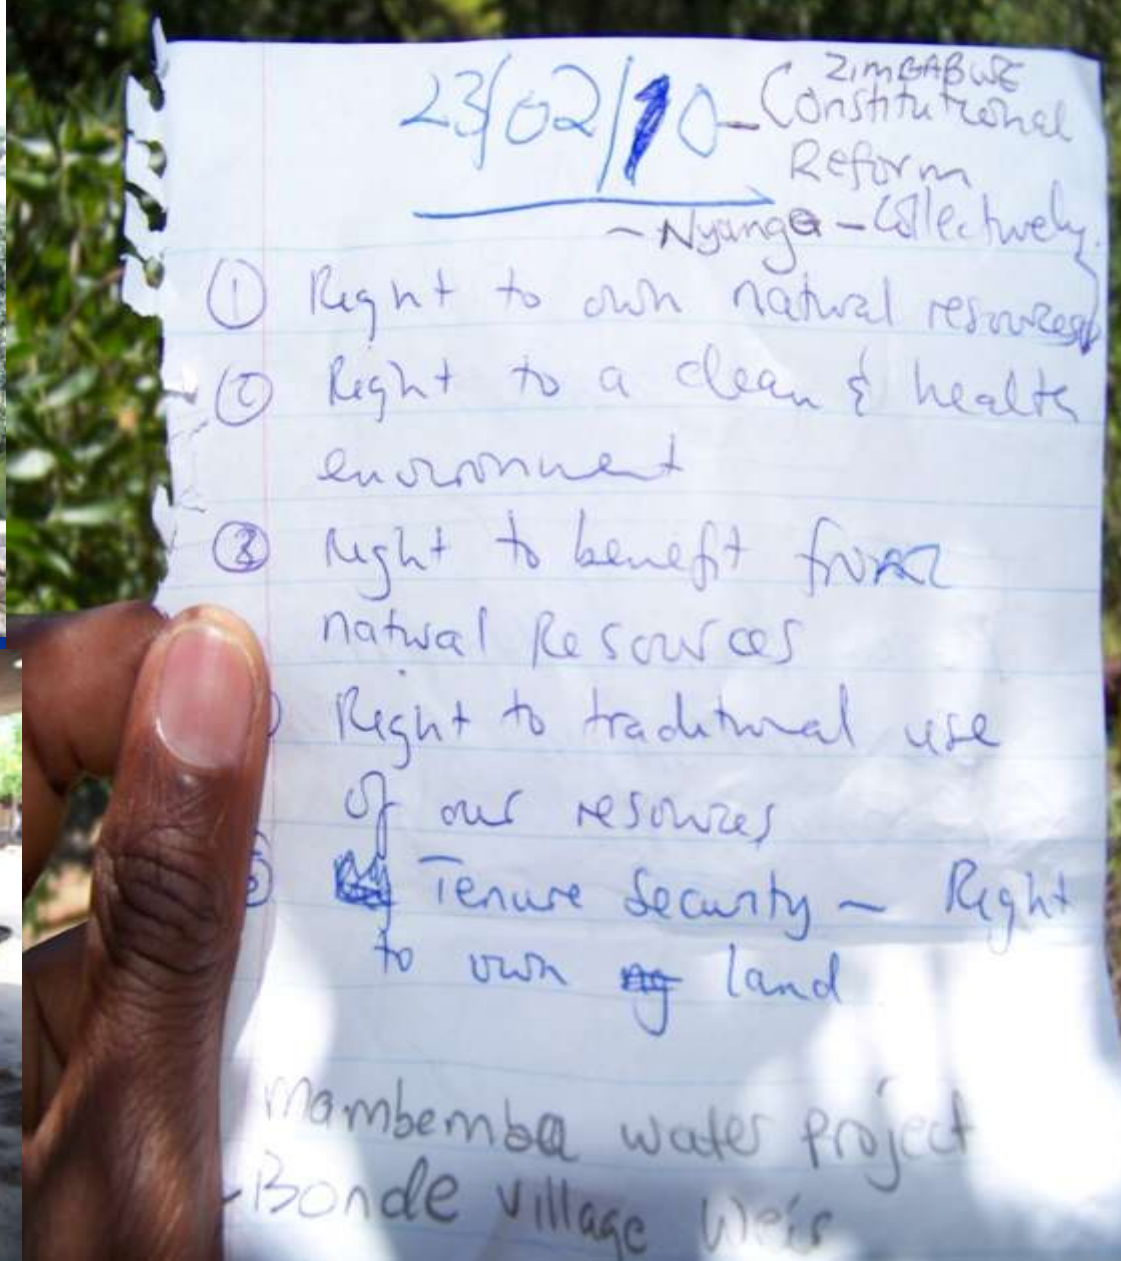 ZIMBABWE
23/02/10 - Constitutional
Reform
- Nyanga - Collectively
① Right to own natural resources
② Right to a clean & health
environment
③ Right to benefit from
natural Resources
Right to traditional use
of our resources
Tenure Security - Right
to own land
Mambemba water project
- Bonde village Weir